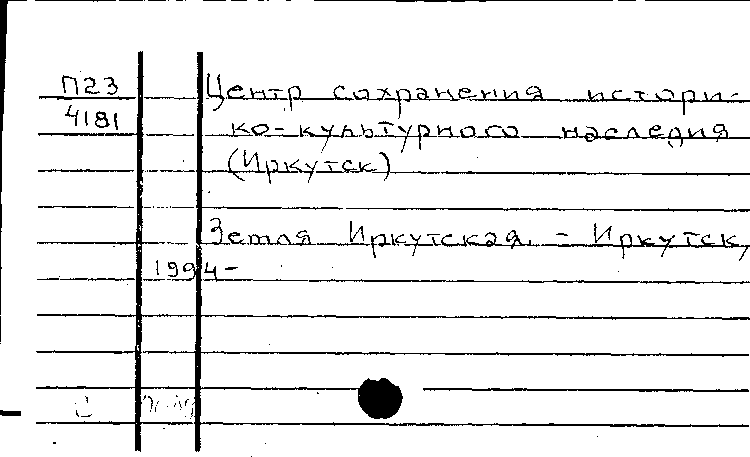 П23
4181
Центр сохранения истори-
ко-культурного наследия
(Иркутск)
Земля Иркутская. - Иркутск,
1994-